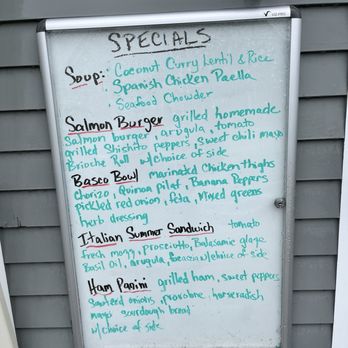 SPECIALS
Soup: Coconut Curry Lentil & Rice
Spanish Chicken Paella
Seafood Chowder
Salmon Burger grilled homemade
Salmon burger, arugula, tomato
grilled Shichito peppers, sweet chili mayo
Brioche Roll w/choice of side
Basco Bowl marinated Chicken thighs
chorizo, Quinoa pilaf, Banana Peppers
pickled red onion, feta, Mixed greens
herb dressing
Italian Summer Sandwich tomato
fresh mozz, prosciutto, Balsamic glaze
Basil Oil, arugula, w/choice of side
Ham Panini grilled ham, sweet peppers
sauteed onions, provolone, horseradish
mayo sourdough bread
w/choice of side